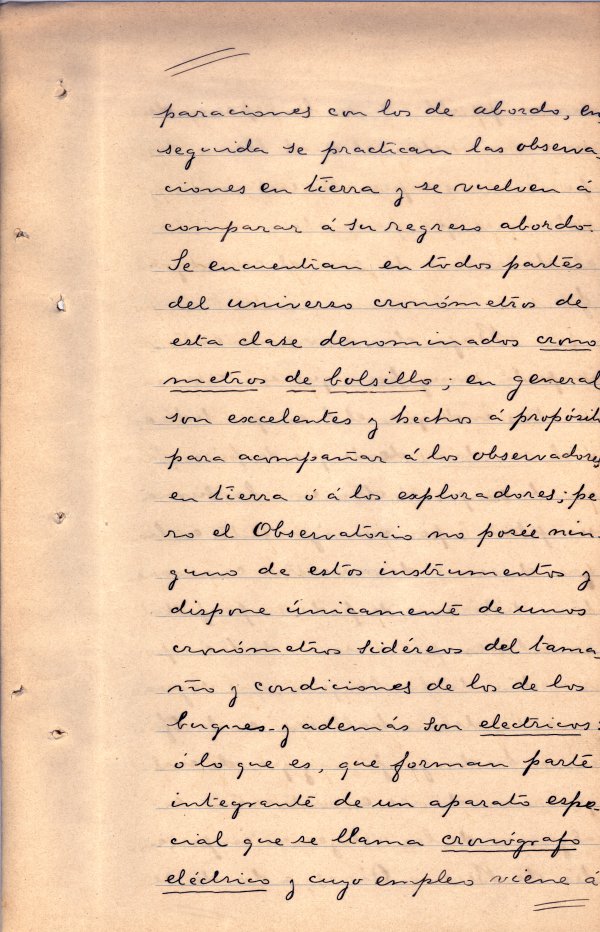 paraciones con los de abordo, en
seguida se practican las observa-
ciones en tierra y se vuelven á
comparar á su regreso abordo.
Se encuentran en todos partes
del universo cronómetros de
esta clase denominados crono
metros de bolsillo; en general
son excelentes y hechos á propósit
para acompañar á los observadores
en tierra ó á los exploradores; pe
ro el Observatorio no posée nin-
guno de estos instrumentos y
dispone únicamente de unos
cronómetros sidéreos del tama-
ño y condiciones de los de los
buques y además son electricos:
ó lo que es, que forman parte
integrante de un aparato espe-
cial que se llama cronógrafo
eléctrico y cuyo empleo viene á